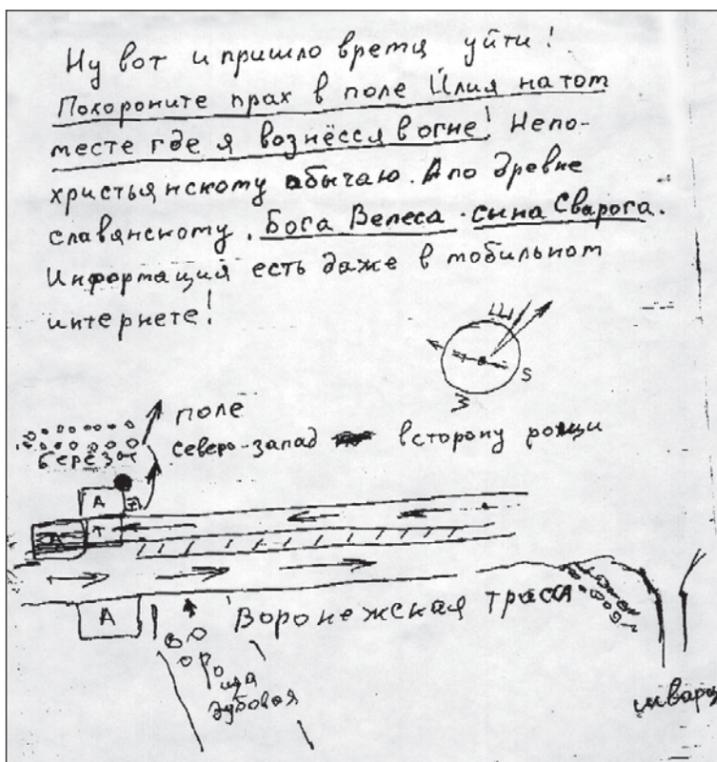 Ну вот и пришло время уйти!
Похороните прах в поле Илия на том
месте где я вознёсся в огне! Непо-
христьянскому обычаю. А по древне
славянскому. Бога Велеса - сына Сварога.
Информация есть даже в мобильном
интернете!
E
S
W
поле
берёзы
северо-запад в сторону рощи
А
А
Т
А
Воронежская трасса
роща
дубовая